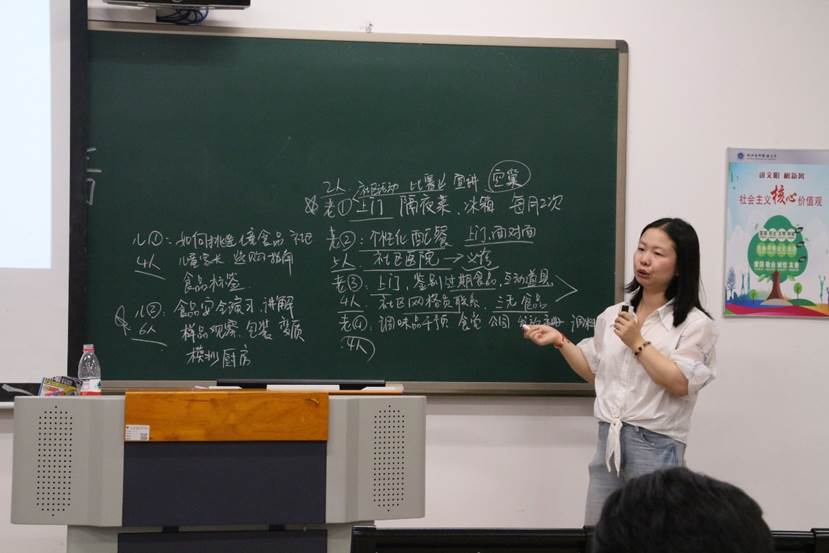 儿①: 如何挑选儿童食品
4人 儿童家长 选购指南
食品标签
儿②: 食品安全演习.讲解
6人 样品观察.包装 变质
模拟厨房
2人: 社区活动 宣讲. 空巢
老① 上门 隔夜菜、冰箱 每月2次
老②: 个性化配餐 上门.面对面
5人 社区医院 → 义诊
老③: 上门. 鉴别过期食品, 互动道具
4人 社区网格员联系. 三无食品
老④: 调味品干预 食堂 公司 调料
4人
讲文明 树新风
社会主义核心价值观